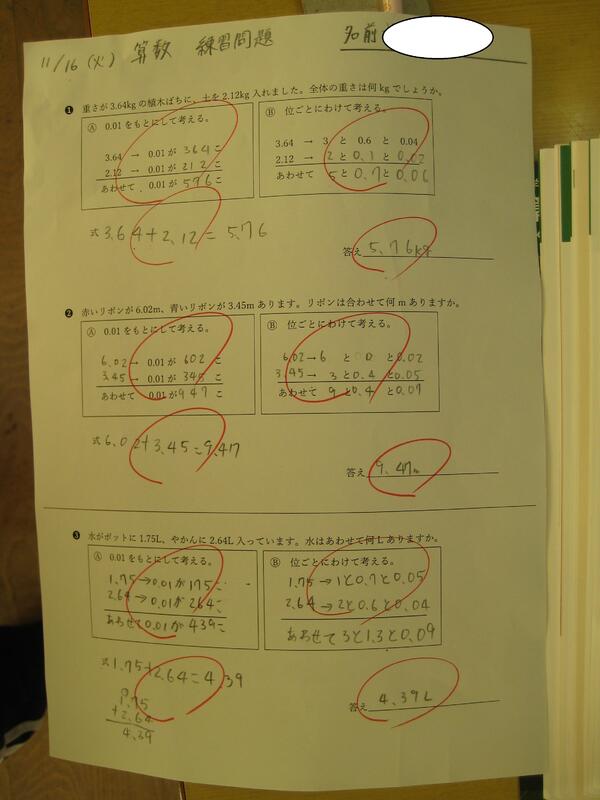 11/16 (火) 算数 練習問題 名前
❶ 重さが3.64kgの植木ばちに、土を2.12kg入れました。全体の重さは何kgでしょうか。
Ⓐ 0.01をもとにして考える。
3.64 → 0.01が 364 こ
2.12 → 0.01が 212 こ
あわせて 0.01が 576 こ
Ⓑ 位ごとにわけて考える。
3.64 → 3 と 0.6 と 0.04
2.12 → 2 と 0.1 と 0.02
あわせて 5 と 0.7 と 0.06
式 3.64+2.12=5.76
答え 5.76kg
❷ 赤いリボンが6.02m、青いリボンが3.45mあります。リボンは合わせて何mありますか。
Ⓐ 0.01をもとにして考える。
6.02 → 0.01が 602 こ
3.45 → 0.01が 345 こ
あわせて 0.01が 947 こ
Ⓑ 位ごとにわけて考える。
6.02 → 6 と 0 と 0.02
3.45 → 3 と 0.4 と 0.05
あわせて 9 と 0.4 と 0.07
式 6.02+3.45=9.47
答え 9.47m
❸ 水がポットに1.75L、やかんに2.64L入っています。水はあわせて何Lありますか。
Ⓐ 0.01をもとにして考える。
1.75→0.01が175こ
2.64→0.01が264こ
あわせて0.01が439こ
Ⓑ 位ごとにわけて考える。
1.75→1と0.7と0.05
2.64→2と0.6と0.04
あわせて3と1.3と0.09
式 1.75+2.64=4.39
1.75
+2.64
4.39
答え 4.39L